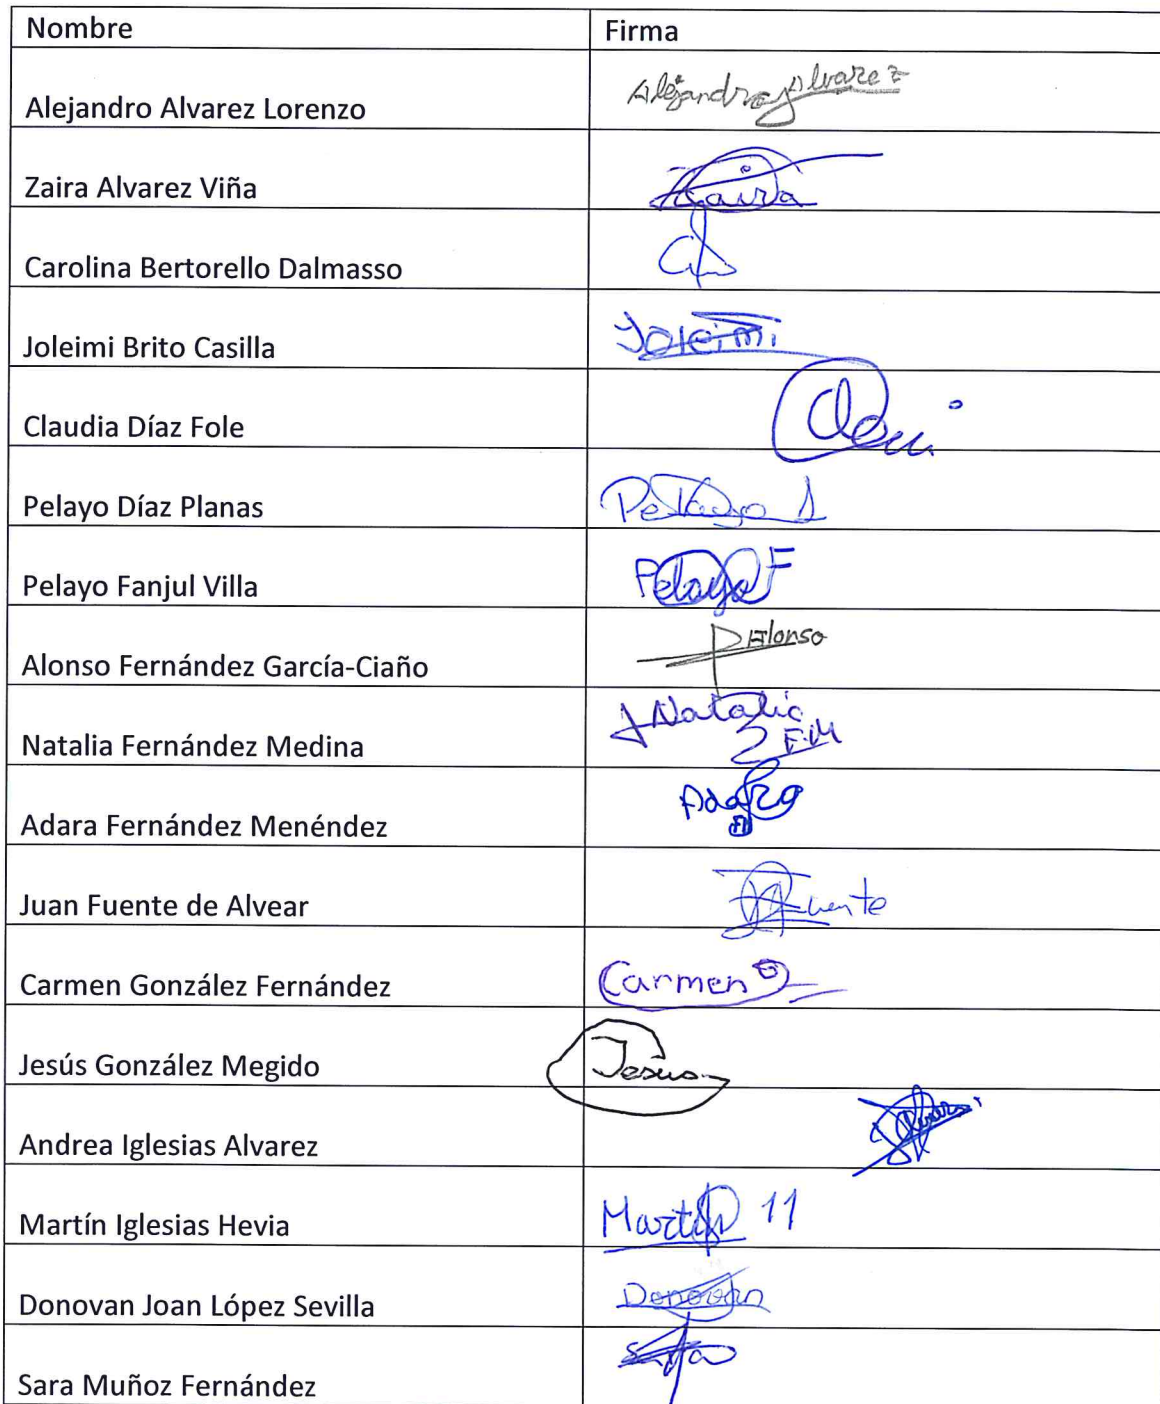 Nombre Firma
Alejandro Alvarez Lorenzo Alejandro Alvarez
Zaira Alvarez Viña Zaira
Carolina Bertorello Dalmasso
Joleimi Brito Casilla Joleimi
Claudia Díaz Fole
Pelayo Díaz Planas Pelayo
Pelayo Fanjul Villa Pelayo F
Alonso Fernández García-Ciaño Alonso
Natalia Fernández Medina Natalia
F.M
Adara Fernández Menéndez Adara
Juan Fuente de Alvear Fuente
Carmen González Fernández Carmen
Jesús González Megido Jesús
Andrea Iglesias Alvarez
Martín Iglesias Hevia Martín 11
Donovan Joan López Sevilla Donovan
Sara Muñoz Fernández Sara